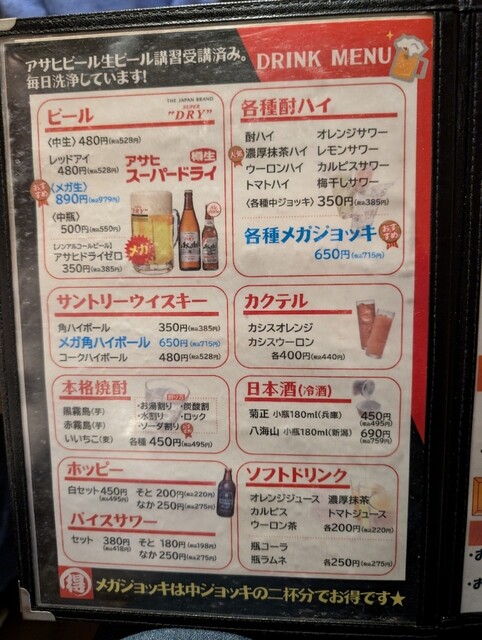 アサヒビール生ビール講習受講済み。
毎日洗浄しています!
DRINK MENU
ビール
THE JAPAN BRAND
SUPER
"DRY"
〈中生〉480円(税込528円)
レッドアイ
480円(税込528円)
アサヒ
樽生
スーパードライ
おすすめ
〈メガ生〉
890円(税込979円)
〈中瓶〉
500円(税込550円)
[ノンアルコールビール]
アサヒドライゼロ
350円(税込385円)
メガ
各種酎ハイ
酎ハイ オレンジサワー
人気
濃厚抹茶ハイ レモンサワー
ウーロンハイ カルピスサワー
トマトハイ 梅干しサワー
〈各種中ジョッキ〉350円(税込385円)
各種メガジョッキ
おすすめ
650円(税込715円)
サントリーウイスキー
角ハイボール 350円(税込385円)
メガ角ハイボール 650円(税込715円)
コークハイボール 480円(税込528円)
カクテル
カシスオレンジ
カシスウーロン
各400円(税込440円)
本格焼酎
黒霧島(芋)
赤霧島(芋)
いいちこ(麦)
割り方
・お湯割り ・炭酸割
・水割り ・ロック
・ソーダ割り
各種 450円(税込495円)
日本酒(冷酒)
菊正 小瓶180ml(兵庫) 450円
(税込495円)
八海山 小瓶180ml(新潟) 690円
(税込759円)
ホッピー
白セット 450円
(税込495円)
そと 200円(税込220円)
なか 250円(税込275円)
バイスサワー
セット 380円
(税込418円)
そと 180円(税込198円)
なか 250円(税込275円)
ソフトドリンク
オレンジジュース 濃厚抹茶
カルピス トマトジュース
ウーロン茶 各200円(税込220円)
瓶コーラ
瓶ラムネ 各250円(税込275円)
得 メガジョッキは中ジョッキの二杯分でお得です★